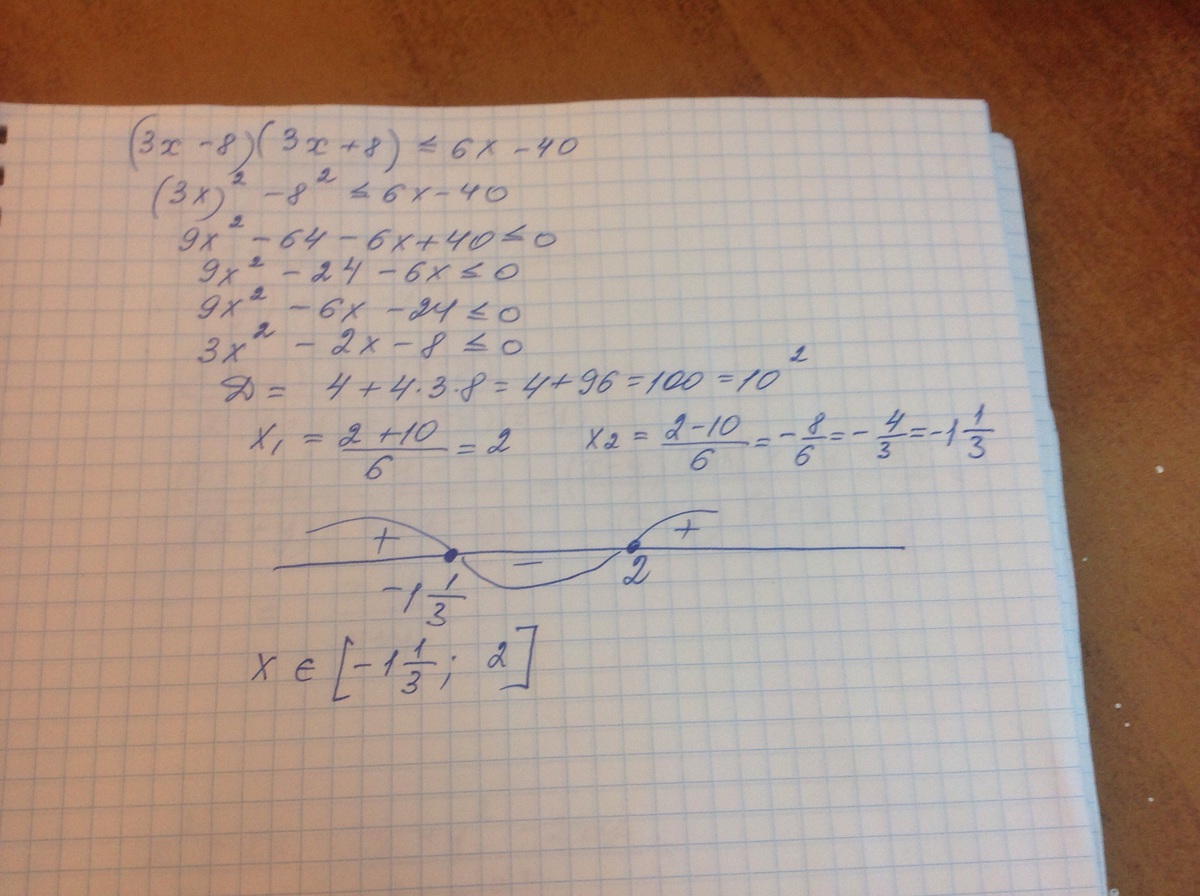 (3x - 8)(3x + 8) ≤ 6x - 40
(3x)² - 8² ≤ 6x - 40
9x² - 64 - 6x + 40 ≤ 0
9x² - 24 - 6x ≤ 0
9x² - 6x - 24 ≤ 0
3x² - 2x - 8 ≤ 0
D = 4 + 4·3·8 = 4 + 96 = 100 = 10²
x₁ = (2 + 10)/6 = 2 x₂ = (2 - 10)/6 = - 8/6 = - 4/3 = -1 1/3
+ - +
-1 1/3 2
x ∈ [-1 1/3; 2]